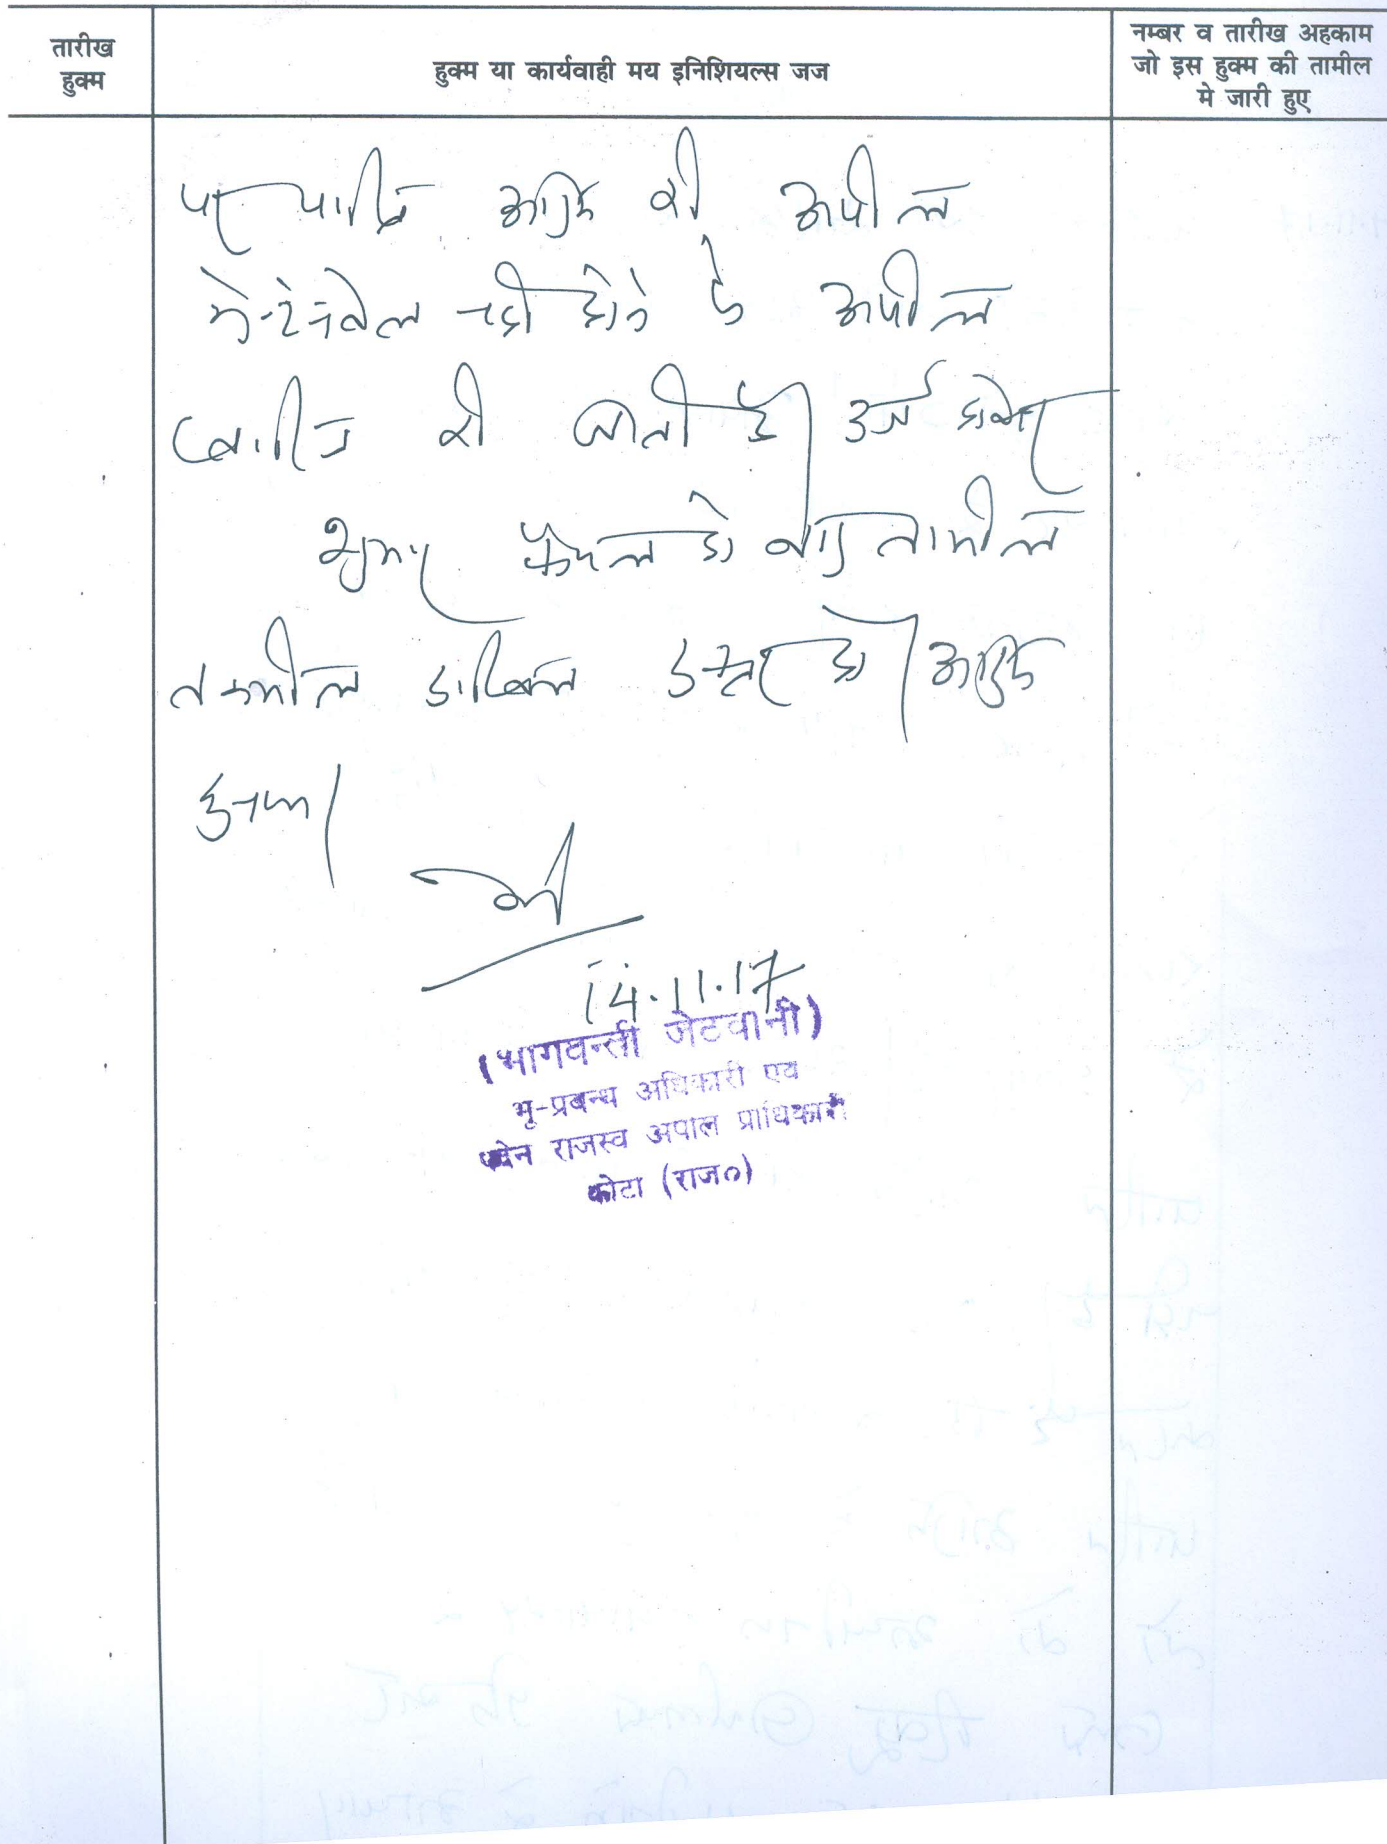 तारीख
हुक्म
हुक्म या कार्यवाही मय इनिशियल्स जज
नम्बर व तारीख अहकाम
जो इस हुक्म की तामील
मे जारी हुए
पर पारित आदेश की अपील
मेन्टेनेबल नही होने से अपील
खारीज की जाती है। दर्ज होकर
शुमार फैसल हो बाद तामील
तकमील दाखिल दफ्तर हो। आदेश
सुनाया।
14.11.17
(भागवन्ती जेटवानी)
भू-प्रबन्ध अधिकारी एव
पदेन राजस्व अपाल प्राधिकारी
कोटा (राज०)